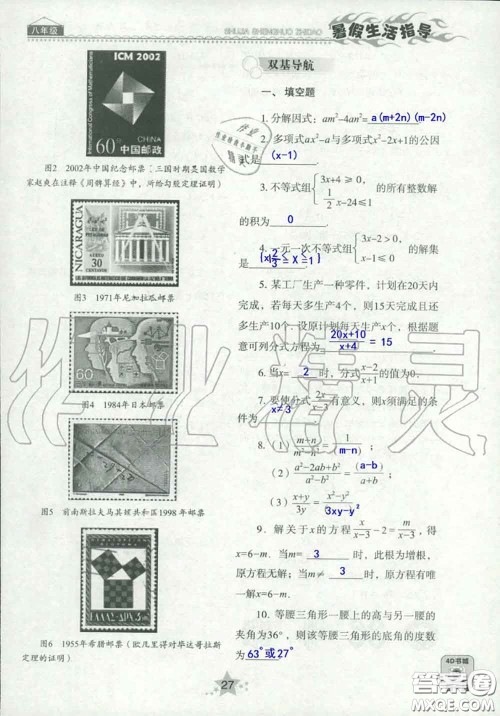 八年级
SHUJIA SHENGHUO ZHIDAO
暑假生活指导
ICM 2002
International Congress of Mathematicians
60分
CHINA
中国邮政
图2 2002年中国纪念邮票〔三国时期吴国数学
家赵爽在注释《周髀算经》中，所给勾股定理证明〕
NICARAGUA
AEREO
30
CENTAVOS
图3 1971年尼加拉瓜邮票
60
图4 1984年日本邮票
图5 前南斯拉夫马其顿共和国1998年邮票
图6 1955年希腊邮票（欧几里得对毕达哥拉斯
定理的证明）
双基导航
一、填空题
1. 分解因式：am²-4an²= a(m+2n)(m-2n)
2. 多项式ax²-a与多项式x²-2x+1的公因
式是 (x-1)
3. 不等式组{3x+4≥0, 1/2x-24≤1 的所有整数解
的积为 0 .
4. 一元一次不等式组{3x-2>0, x-1≤0 的解集
是 {x|2/3≤X≤1}
5. 某工厂生产一种零件，计划在20天内
完成，若每天多生产4个，则15天完成且还
多生产10个．设原计划每天生产x个，根据题
意可列分式方程为 20x+10/x+4 = 15
6. 当x= 2 时，分式x-2/x+1的值为0.
7. 要使分式2x/x-3有意义，则x须满足的条
件为 x≠3 .
8.（1）(m+n)/(m²-n²)=1/(m-n)；
（2）(a²-2ab+b²)/(a²-b²)=(a-b)/(a+b)；
（3）(x+y)/3y=(x²-y²)/(3xy-y²)
9. 解关于x的方程x/(x-3)-2=m/(x-3)，得
x=6-m．当m= 3 时，此根为增根，
原方程无解；当m≠ 3 时，原方程有唯
一解x=6-m.
10. 等腰三角形一腰上的高与另一腰的
夹角为36°，则该等腰三角形的底角的度数
为 63°或27°
27
4D书城
答案圈
MXQE.COM